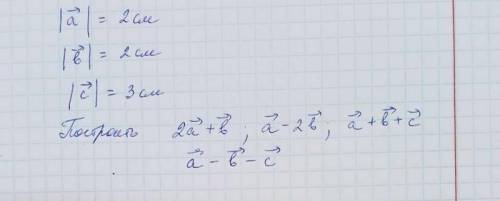 |a⃗| = 2см
|b⃗| = 2см
|c⃗| = 3см
Построить 2a⃗+b⃗ ; a⃗-2b⃗ ; a⃗+b⃗+c⃗
a⃗-b⃗-c⃗